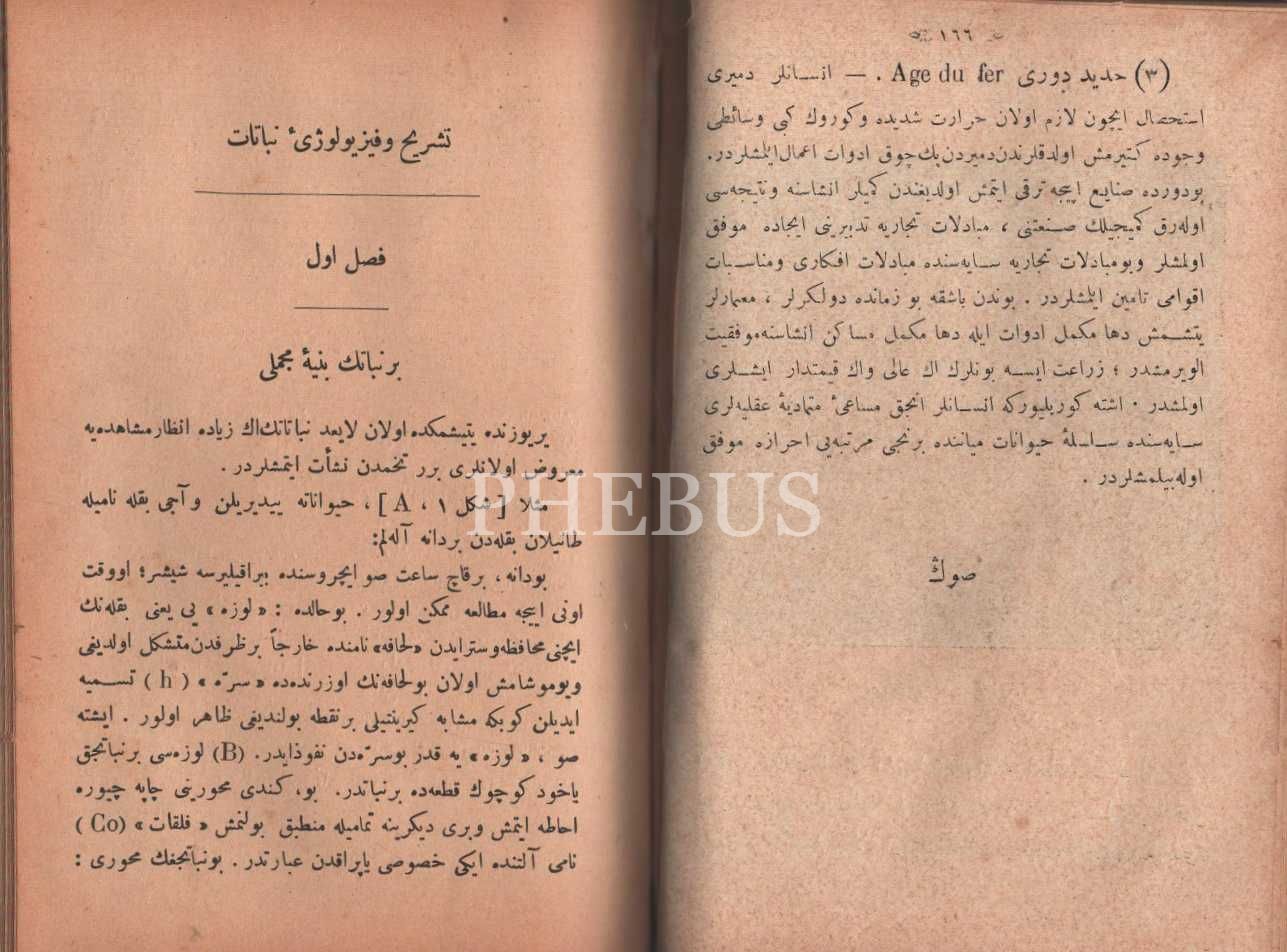 ١٦٦
(٣) حدید دوری Age du fer . — انسانلر دمیری
استحصال ایچون لازم اولان حرارت شدیده وکوروك کبی وسائطی
وجوده کتیرمش اولدقلرندن دمیردن پك چوق ادوات اعمال ایلمشلردر.
بودورده صنایع اییجه ترقی ایتمش اولدیغندن کمیلر انشاسنه ونتیجه سی
اوله رق کمیجیلك صنعتنی ، مبادلات تجاریه تدبیرینی ایجاده موفق
اولمشلر وبومبادلات تجاریه سایه سنده مبادلات افکاری ومناسبات
اقوامی تامین ایلمشلردر . بوندن باشقه بو زمانده دولکرلر ، معمارلر
یتشمش دها مکمل ادوات ایله دها مکمل مساکن انشاسنه موفقیت
الویرمشدر ؛ زراعت ایسه بونلرك اك عالی واك قیمتدار ایشلری
اولمشدر . اشته کوریلیورکه انسانلر انجق مساعیٔ متمادیهٔ عقلیه لری
سایه سنده سلسلهٔ حیوانات میاننده برنجی مرتبه یی احرازه موفق
اوله بیلمشلردر .
صوڭ
تشریح وفیزیولوژیٔ نباتات
فصل اول
برنباتك بنیهٔ مجملی
یریوزنده یتیشمکده اولان لایعد نباتاتك اك زیاده انظار مشاهده یه
معروض اولانلری برر تخمدن نشأت ایتمشلردر .
مثلا [ شکل ١ ، A ] ، حیواناته ییدیریلن وآجی بقله نامیله
طانیلان بقله دن بردانه آله لم:
بودانه ، برقاچ ساعت صو ایچروسنده براقیلیرسه شیشر؛ اووقت
اونی اییجه مطالعه ممکن اولور . بوحالده : « لوزه » یی یعنی بقله نك
ایچنی محافظه وسترایدن «لحافه» نامنده خارجاً برظرفدن متشکل اولدیغی
ویوموشامش اولان بولحافه نك اوزرنده ده « سرّه » ( h ) تسمیه
ایدیلن کوبکه مشابه کیرینتیلی برنقطه بولندیغی ظاهر اولور . ایشته
صو ، « لوزه » یه قدر بوسرّه دن نفوذایدر. (B) لوزه سی برنباتجق
یاخود کوچوك قطعه ده برنباتدر. بو، کندی محورینی چاپه چیوره
احاطه ایتمش وبری دیکرینه تمامیله منطبق بولنمش « فلقات » (Co)
نامی آلتنده ایکی خصوصی یاپراقدن عبارتدر . بونباتجغك محوری :
PHEBUS